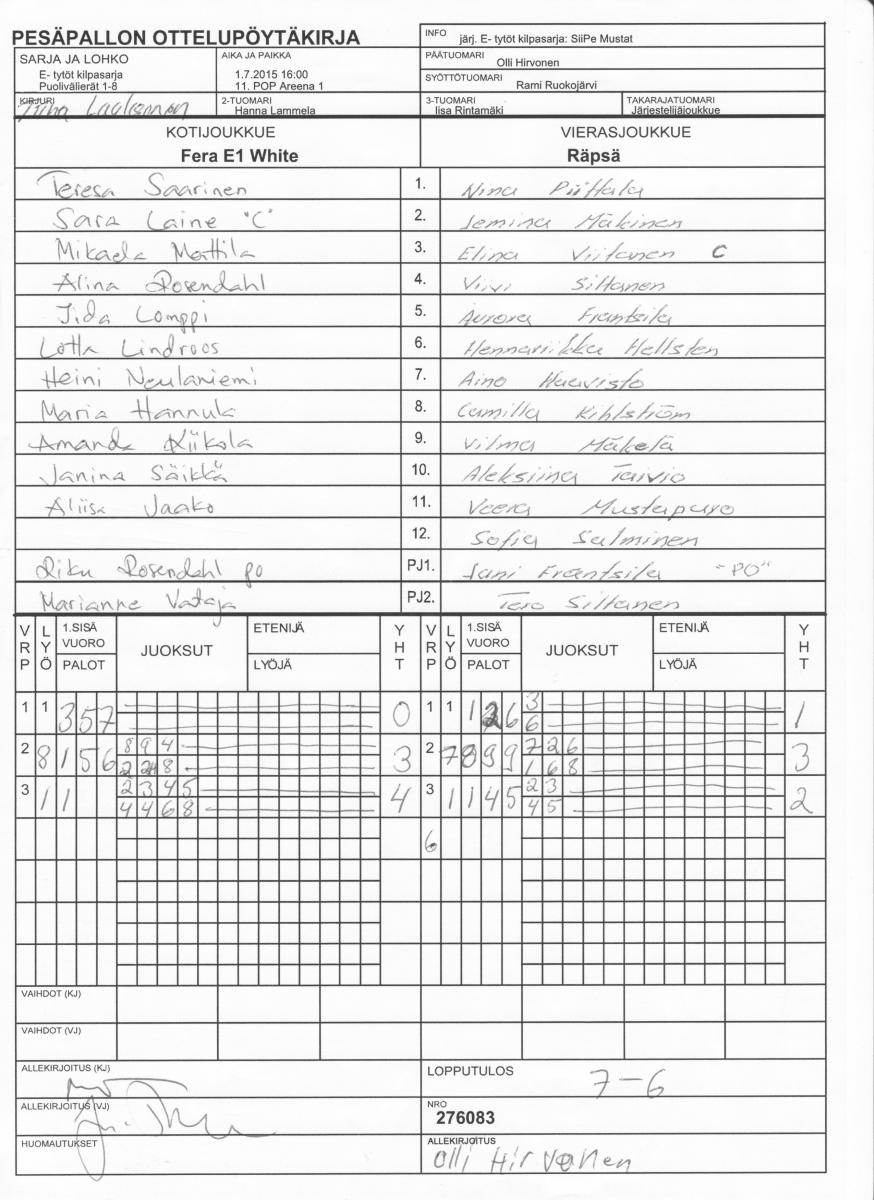 PESÄPALLON OTTELUPÖYTÄKIRJA
INFO järj. E- tytöt kilpasarja: SiiPe Mustat
SARJA JA LOHKO
E- tytöt kilpasarja
Puolivälierät 1-8
AIKA JA PAIKKA
1.7.2015 16:00
11. POP Areena 1
PÄÄTUOMARI
Olli Hirvonen
SYÖTTÖTUOMARI
Rami Ruokojärvi
KIRJURI
2-TUOMARI
Hanna Lammela
3-TUOMARI
Iisa Rintamäki
TAKARAJATUOMARI
Järjestelijäjoukkue
KOTIJOUKKUE VIERASJOUKKUE
Fera E1 White Räpsä
Teresa Saarinen 1. Nina Piittala
Sara Laine "C" 2. Jemina Mäkinen
Mikaela Mattila 3. Elina Viitanen C
Alina Rosendahl 4. Viivi Siltanen
Iida Lomppi 5. Aurora Frantsila
Lotta Lindroos 6. Hennariikka Hellsten
Heini Neulaniemi 7. Aino Haavisto
Maria Hannula 8. Camilla Kihlström
Amanda Kiikola 9. Vilma Mäkelä
Janina Säikkä 10. Aleksiina Taivio
Aliisa Jaako 11. Veera Mustapuro
12. Sofia Salminen
Riku Rosendahl po PJ1. Jani Frantsila "PO"
Marianne Vataja PJ2. Tero Siltanen
VRP LYÖ 1.SISÄ VUORO PALOT JUOKSUT ETENIJÄ LYÖJÄ YHT VRP LYÖ 1.SISÄ VUORO PALOT JUOKSUT ETENIJÄ LYÖJÄ YHT
3
1 1 3 5 7 0 1 1 1 2 6 1
6
8 9 4 7 2 6
2 8 1 5 6 3 2 7 8 9 9 3
2 8 1 6 8
2 3 4 5 2 3
3 1 1 4 3 1 1 4 5 2
4 4 6 8 4 5
6
VAIHDOT (KJ)
VAIHDOT (VJ)
ALLEKIRJOITUS (KJ)
LOPPUTULOS 7-6
ALLEKIRJOITUS (VJ)
NRO
276083
HUOMAUTUKSET
ALLEKIRJOITUS
Olli Hirvonen